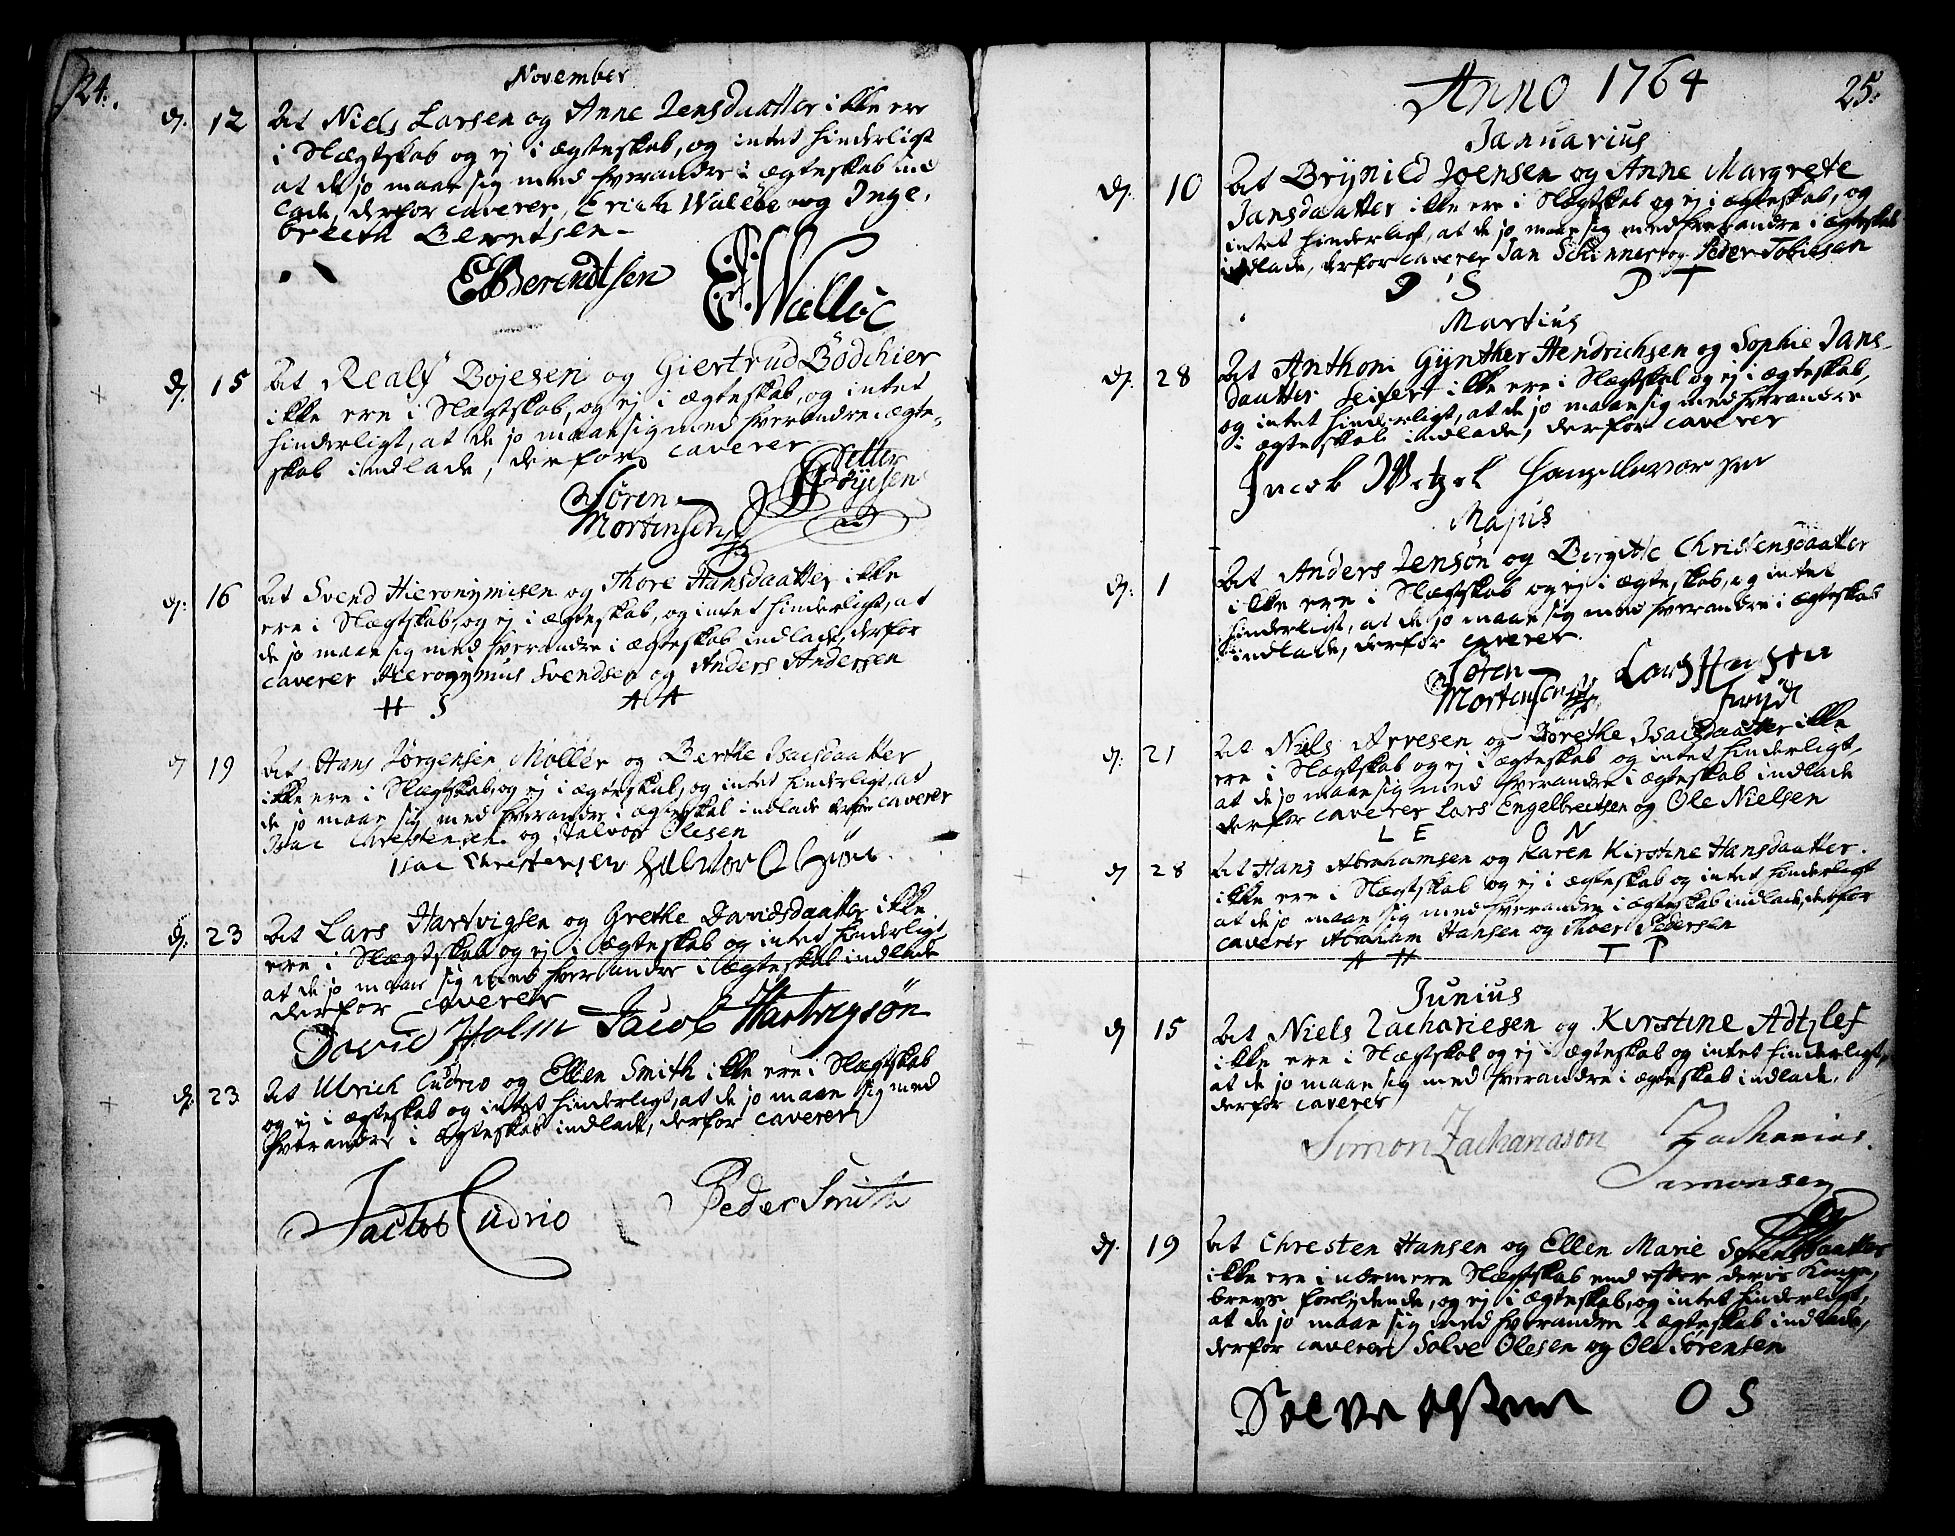 24.
November
d. 12 At Niels Larsen og Anne Jensdaatter ikke ere
i Slægtskab og ej i ægteskab, og intet hinderligt
at de jo maae sig med hverandre i ægteskab ind
lade, derfor caverer, Erich Walløe og Inge,
breeth Berntsen.
EBerendtsen E Walløe
d. 15 At Realf Bojesen og Giertrud Bödchier
ikke ere i Slægtskab, og ej i ægteskab, og intet
hinderligt, at de jo maae sig med hverandre i ægte-
skab indlade, derfor caverer
Søren Petter
Mortensen Böyesen
d. 16 At Svend Hieronymisen og Thore Hansdaatter ikke
ere i Slægtskab, og ej i ægteskab, og intet hinderligt, at
de jo maae sig med hverandre i ægteskab indlade, derfor
caverer Hieronymus Svendsen og Anders Andersen
H S A A
d 19 At Hans Jørgensen Møller og Berthe Isacsdaatter
ikke ere i Slægtskab, og ej i ægteskab, og intet hinderligt, at
de jo maae sig med hverandre i ægteskab indlade derfor caverer
Isac Christensen og Halvor Olesen
Isac Christensen Halvor Olsøn.
d. 23 At Lars Hartvigsen og Grethe Davidsdaatter ikke
ere i Slægtskab og ej i ægteskab og intet hinderligt,
at de jo maae sig med hverandre i ægteskab indlade
derfor caverer
David Holm Jacob Hartvigsøn
d. 23 At Ulrich Cudrio og Ellen Smith ikke ere i Slægtskab
og ej i ægteskab og intet hinderligt, at de jo maae sig med
hverandre i ægteskab indlade, derfor caverer
Jacob Cudrio Peder Smith
Anno 1764 25.
Januarius
d. 10 At Brynild Joensen og Anne Margrete
Jansdaatter ikke ere i Slægtskab og ej i ægteskab, og
intet hinderligt, at de jo maae sig med hverandre i ægteskab
indlade, derfor caverer Jan Skinner og Peder Tobiesen
J S P T
Martius
d. 28 At Anthoni Gynther Hendrichsen og Sophie Jans-
daatter Seifert ikke ere i Slægtskab og ej i ægteskab,
og intet hinderligt, at de jo maae sig med hverandre
i ægteskab indlade, derfor caverer
Jacob Wetzel
Majus
d. 1 At Anders Jensøn og Birgitte Christensdaatter
ikke ere i Slægtskab og ej i ægteskab, og intet
hinderligt, at de jo maae sig med hverandre i ægteskab
indlade, derfor caverer
Søren Lars Hansen
Mortensen
d. 21 At Niels Arvesen og Dorethe Isacsdaatter ikke
ere i Slægtskab og ej i ægteskab og intet hinderligt,
at de jo maae sig med hverandre i ægteskab indlade
derfor caverer Lars Engelbretsen og Ole Nielsen
L E O N
d 28 At Hans Abrahamsen og Karen Kirstine Hansdaatter.
ikke ere i Slægtskab og ej i ægteskab og intet hinderligt
at de jo maae sig med hverandre i ægteskab indlade, derfor
caverer Abraham Hansen og Thoer Pedersen
A H T P
Junius
d 15 At Niels Zachariesen og Kirstine Adtzlef
ikke ere i Slægtskab og ej i ægteskab og intet hinderligt,
at de jo maae sig med hverandre i ægteskab indlade,
derfor caverer
Simon Zachariason Zacharias
Simonsen
d. 19 At Chresten Hansen og Ellen Marie Sørensdaatter
ikke ere i nærmere Slægtskab end efter deris Konge,
brevs forlydende, og ej i ægteskab, og intet hinderligt,
at de jo maae sig med hverandre i ægteskab indlade,
derfor caverer Solve Olesen og Ole Sørensen
Solve Olsen O S